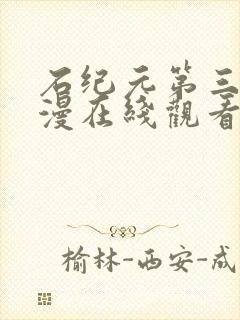 石纪元第三
漫在綫觀看
榆林-西安-成